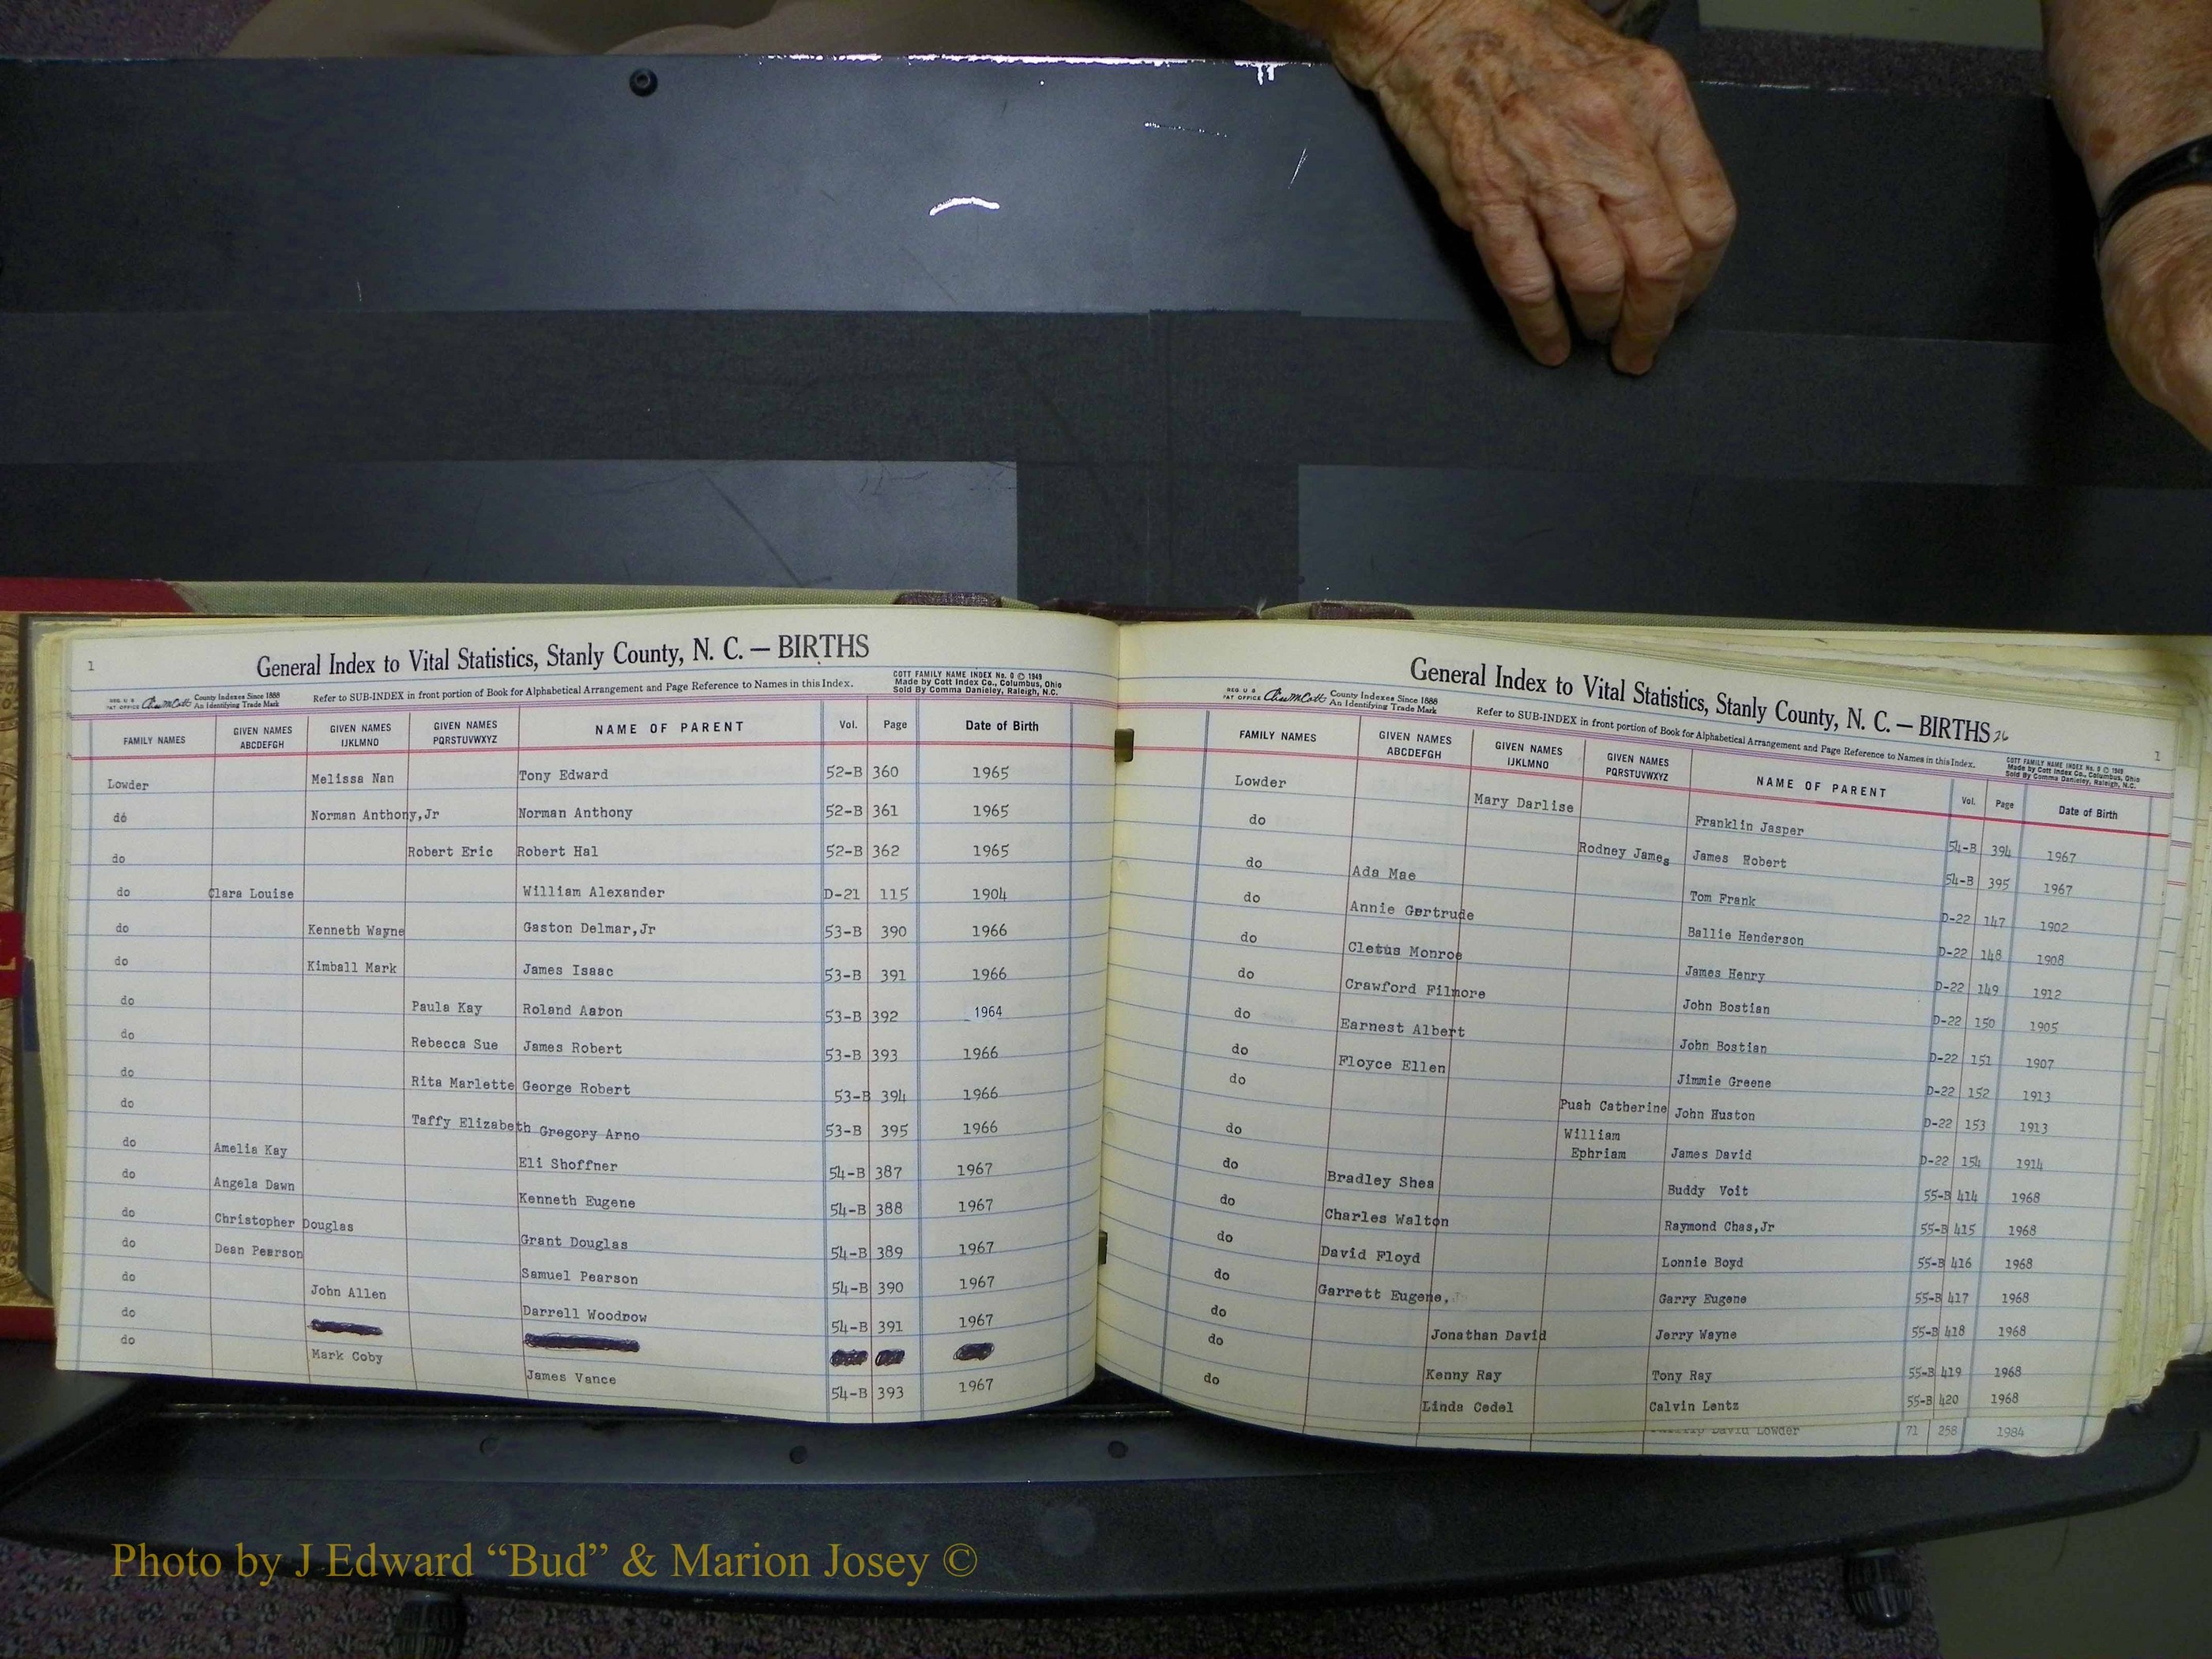 1
General Index to Vital Statistics, Stanly County, N. C. — BIRTHS
REG. U S PAT OFFICE County Indexes Since 1888 An Identifying Trade Mark
Refer to SUB-INDEX in front portion of Book for Alphabetical Arrangement and Page Reference to Names in this Index.
COTT FAMILY NAME INDEX No. 0 © 1949
Made by Cott Index Co., Columbus, Ohio
Sold By Comma Danieley, Raleigh, N.C.
FAMILY NAMES GIVEN NAMES ABCDEFGH GIVEN NAMES IJKLMNO GIVEN NAMES PQRSTUVWXYZ NAME OF PARENT Vol. Page Date of Birth
Lowder Melissa Nan Tony Edward 52-B 360 1965
do Norman Anthony,Jr Norman Anthony 52-B 361 1965
do Robert Eric Robert Hal 52-B 362 1965
do Clara Louise William Alexander D-21 115 1904
do Kenneth Wayne Gaston Delmar,Jr 53-B 390 1966
do Kimball Mark James Isaac 53-B 391 1966
do Paula Kay Roland Aaron 53-B 392 1964
do Rebecca Sue James Robert 53-B 393 1966
do Rita Marlette George Robert 53-B 394 1966
do Taffy Elizabeth Gregory Arno 53-B 395 1966
do Amelia Kay Eli Shoffner 54-B 387 1967
do Angela Dawn Kenneth Eugene 54-B 388 1967
do Christopher Douglas Grant Douglas 54-B 389 1967
do Dean Pearson Samuel Pearson 54-B 390 1967
do John Allen Darrell Woodrow 54-B 391 1967
do
do Mark Coby James Vance 54-B 393 1967
General Index to Vital Statistics, Stanly County, N. C. — BIRTHS 26
1
REG. U S PAT OFFICE County Indexes Since 1888 An Identifying Trade Mark
Refer to SUB-INDEX in front portion of Book for Alphabetical Arrangement and Page Reference to Names in this Index.
COTT FAMILY NAME INDEX No. 0 © 1949
Made by Cott Index Co., Columbus, Ohio
Sold By Comma Danieley, Raleigh, N.C.
FAMILY NAMES GIVEN NAMES ABCDEFGH GIVEN NAMES IJKLMNO GIVEN NAMES PQRSTUVWXYZ NAME OF PARENT Vol. Page Date of Birth
Lowder Mary Darlise Franklin Jasper 54-B 394 1967
do Rodney James James Robert 54-B 395 1967
do Ada Mae Tom Frank D-22 147 1902
do Annie Gertrude Ballie Henderson D-22 148 1908
do Cletus Monroe James Henry D-22 149 1912
do Crawford Filmore John Bostian D-22 150 1905
do Earnest Albert John Bostian D-22 151 1907
do Floyce Ellen Jimmie Greene D-22 152 1913
do Puah Catherine John Huston D-22 153 1913
do William Ephriam James David D-22 154 1914
do Bradley Shea Buddy Voit 55-B 414 1968
do Charles Walton Raymond Chas,Jr 55-B 415 1968
do David Floyd Lonnie Boyd 55-B 416 1968
do Garrett Eugene, Garry Eugene 55-B 417 1968
do Jonathan David Jerry Wayne 55-B 418 1968
do Kenny Ray Tony Ray 55-B 419 1968
do Linda Cedel Calvin Lentz 55-B 420 1968
David Lowder 71 258 1984
Photo by J Edward “Bud” & Marion Josey ©